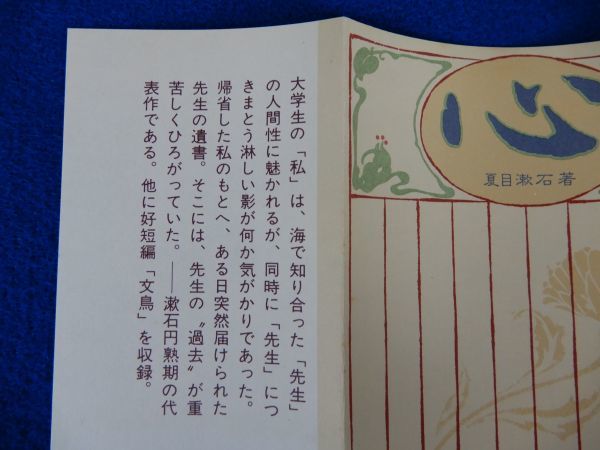 大学生の「私」は、海で知り合った「先生」
の人間性に魅かれるが、同時に「先生」につ
きまとう淋しい影が何か気がかりであった。
帰省した私のもとへ、ある日突然届けられた
先生の遺書。そこには、先生の〝過去〟が重
苦しくひろがっていた。――漱石円熟期の代
表作である。他に好短編「文鳥」を収録。
心
夏目漱石著